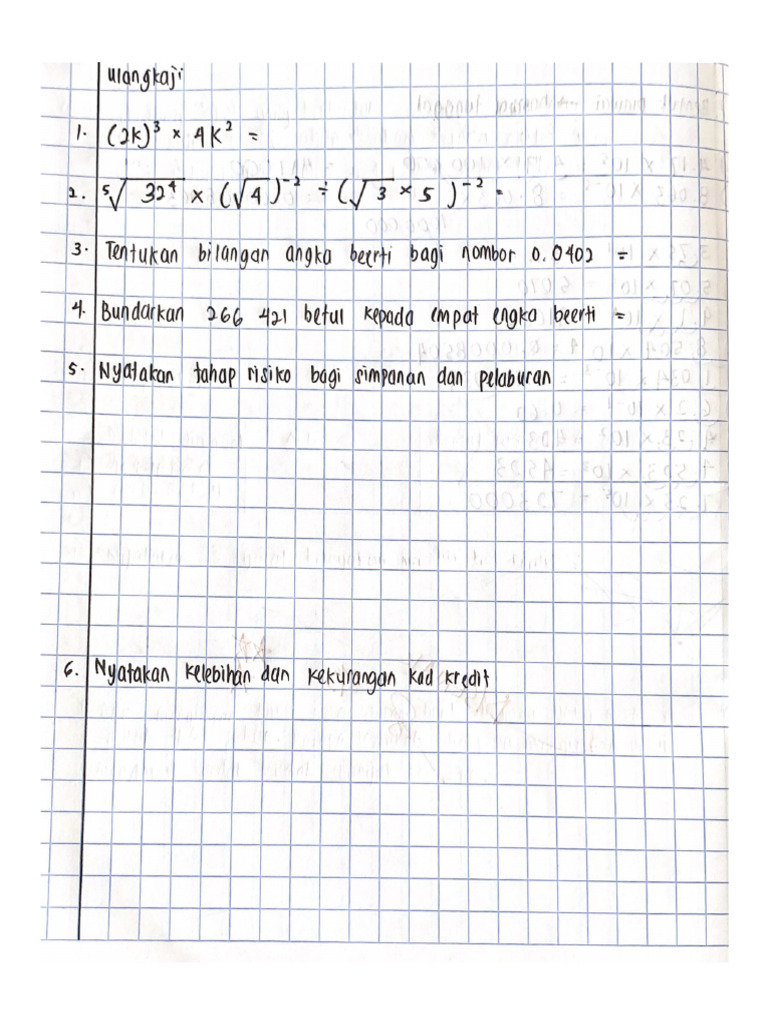 ulangkaji
1. (2K)³ × 4K² =
2. ⁵√32⁴ × (√4)⁻² ÷ (√3 × 5)⁻² =
3. Tentukan bilangan angka beerti bagi nombor 0.0402 =
4. Bundarkan 266 421 betul kepada empat engka beerti =
5. Nyatakan tahap risiko bagi simpanan dan pelaburan
6. Nyatakan kelebihan dan kekurangan kad kredit